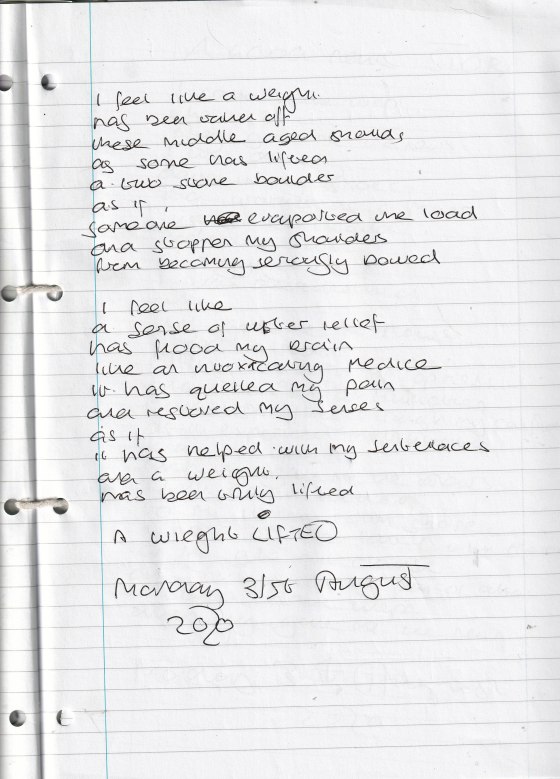 I feel like a weight
has been taken off
these middle aged shoulds
as some has lifted
a two stone boulder
as if
someone evaporated the load
and stopped my shoulders
from becoming seriously bowed
I feel like
a sense of utter relief
has flood my brain
like an intoxicating medice
it has quelled my pain
and restored my senses
as if
it has helped with my
and a weight
has been truly lifted
A wieght LIFTED
Monday 31st August
2020